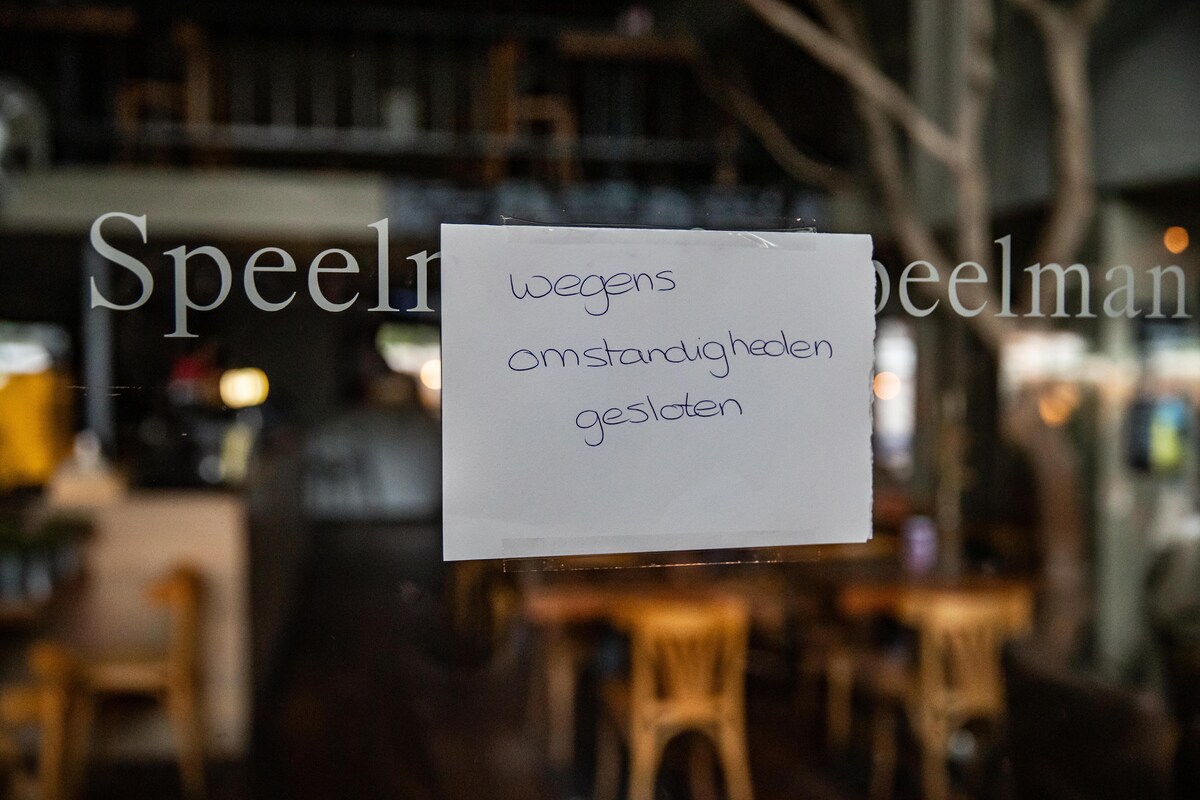 Speelm peelman
wegens
omstandigheden
gesloten